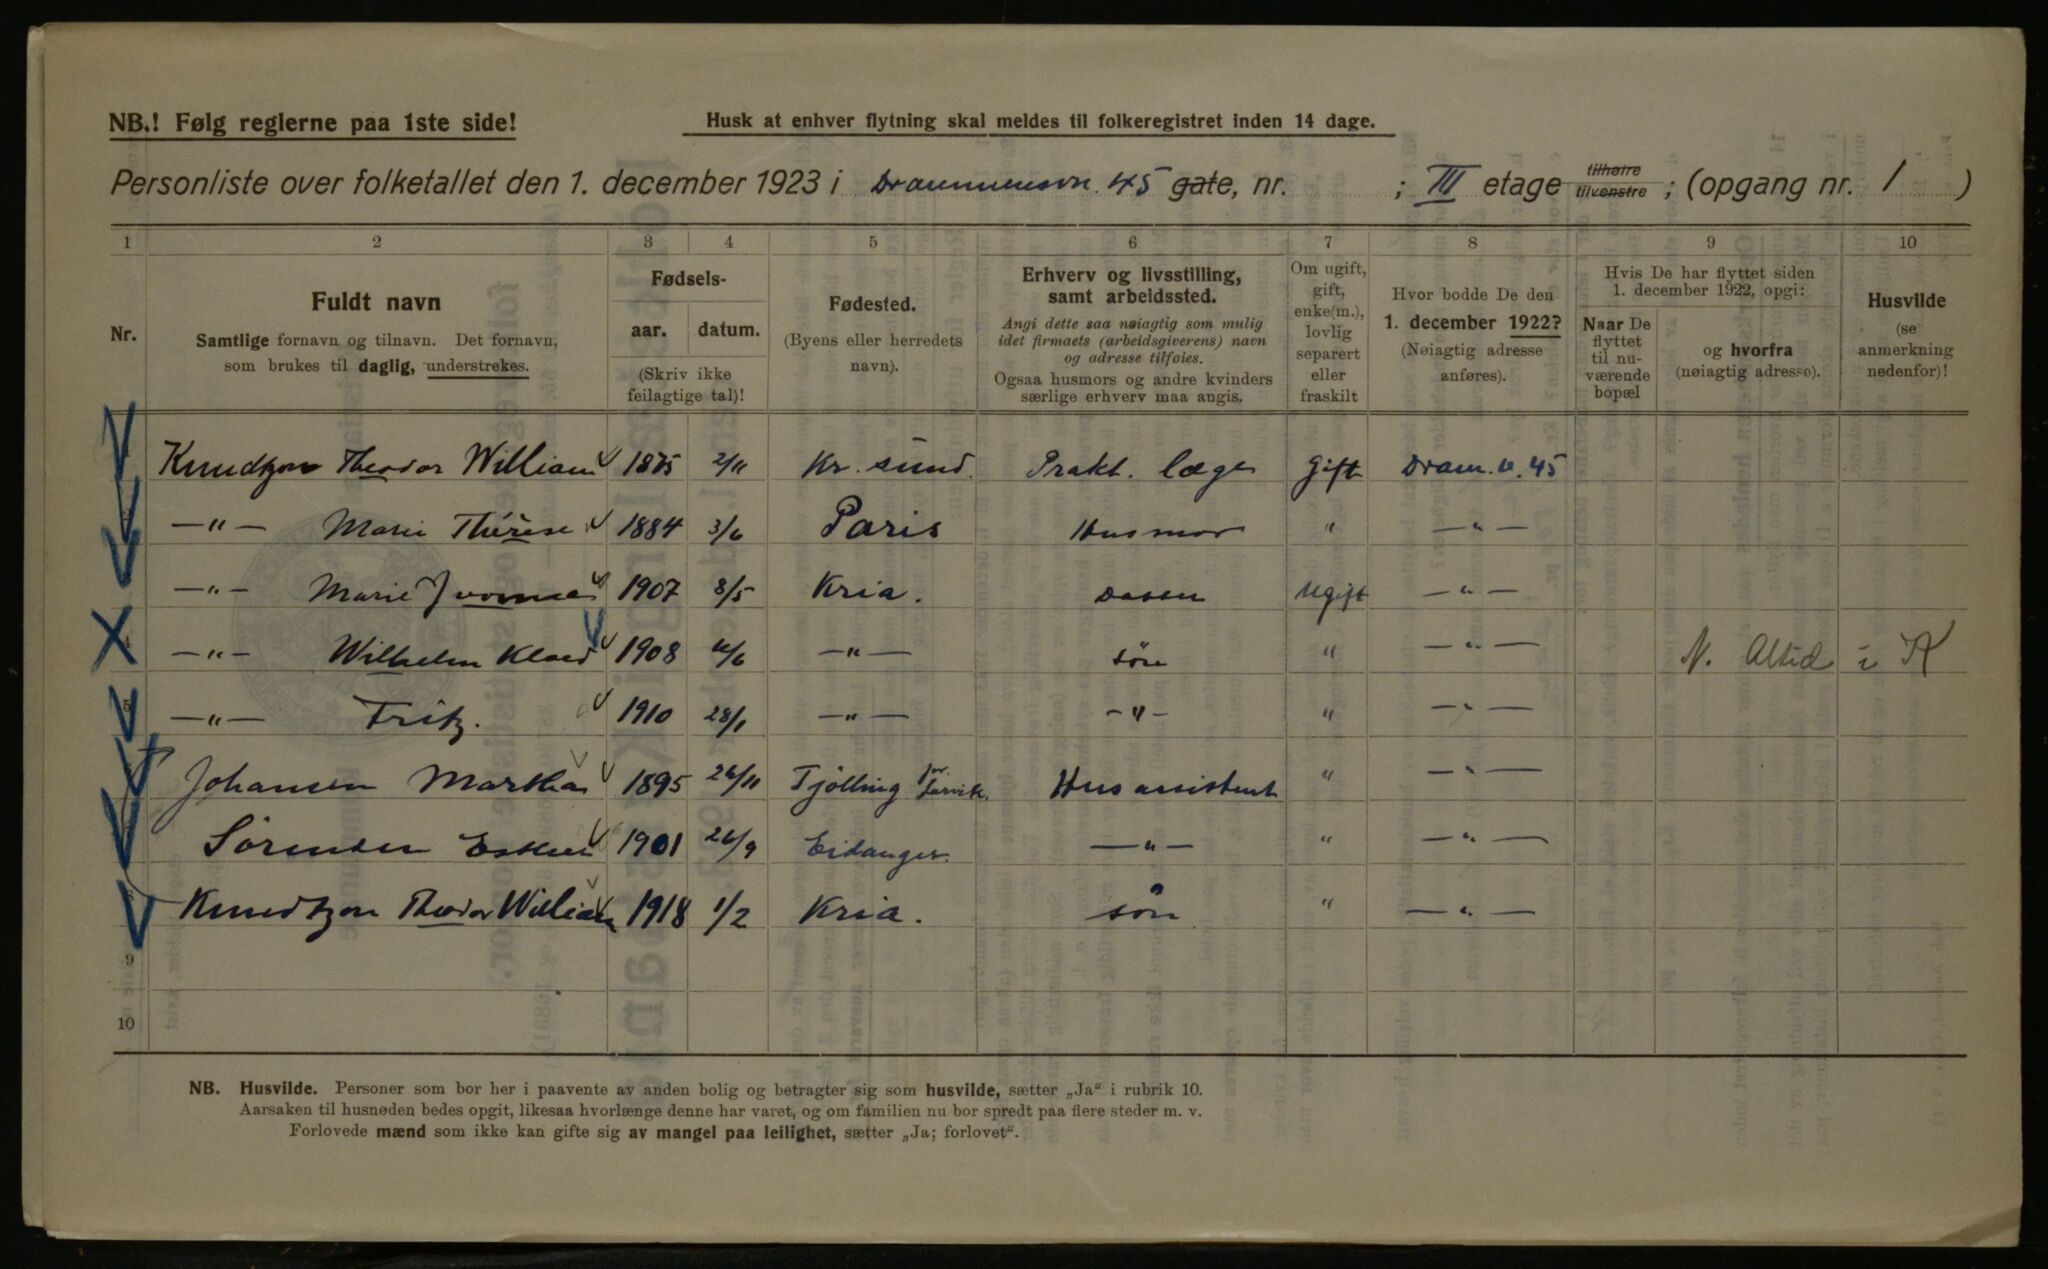 NB.! Følg reglerne paa 1ste side!
Husk at enhver flytning skal meldes til folkeregistret inden 14 dage.
Personliste over folketallet den 1. december 1923 i Drammensvn. 45 gate, nr. ; III etage tilhøire tilvenstre ; (opgang nr. 1 )
1 2 3 4 5 6 7 8 9 10
Nr.
Fuldt navn
Samtlige fornavn og tilnavn. Det fornavn,
som brukes til daglig, understrekes.
Fødsels-
aar. datum.
(Skriv ikke
feilagtige tal)!
Fødested.
(Byens eller herredets
navn).
Erhverv og livsstilling,
samt arbeidssted.
Angi dette saa nøiagtig som mulig
idet firmaets (arbeidsgiverens) navn
og adresse tilføies.
Ogsaa husmors og andre kvinders
særlige erhverv maa angis.
Om ugift,
gift,
enke(m.),
lovlig
separert
eller
fraskilt
Hvor bodde De den
1. december 1922?
(Nøiagtig adresse
anføres).
Hvis De har flyttet siden
1. december 1922, opgi:
Naar De
flyttet
til nu-
værende
bopæl
og hvorfra
(nøiagtig adresse).
Husvilde
(se
anmerkning
nedenfor)!
Knudtzon Theodor William 1875 2/11 Kr. sund. Prakt. læge Gift Dram. v. 45
—"— Marie Thérèse 1884 3/6 Paris Husmor " —"—
—"— Marie Yvonne 1907 8/5 Kria. Ugift —"—
4 —"— Wilhelm 1908 —"— søn " —"— N. Altid i K
5 —"— Fritz. 1910 28/1 —"— —"— " —"—
Johansen Martha 1895 26/11 Tjølling pr. Larvik. Husassistent " —"—
Sørensen 1901 26/9 Eidanger. —"— " —"—
Knudtzon Theodor William 1918 1/2 Kria. søn " —"—
9
10
NB. Husvilde. Personer som bor her i paavente av anden bolig og betragter sig som husvilde, sætter „Ja“ i rubrik 10.
Aarsaken til husnøden bedes opgit, likesaa hvorlænge denne har varet, og om familien nu bor spredt paa flere steder m. v.
Forlovede mænd som ikke kan gifte sig av mangel paa leilighet, sætter „Ja; forlovet“.